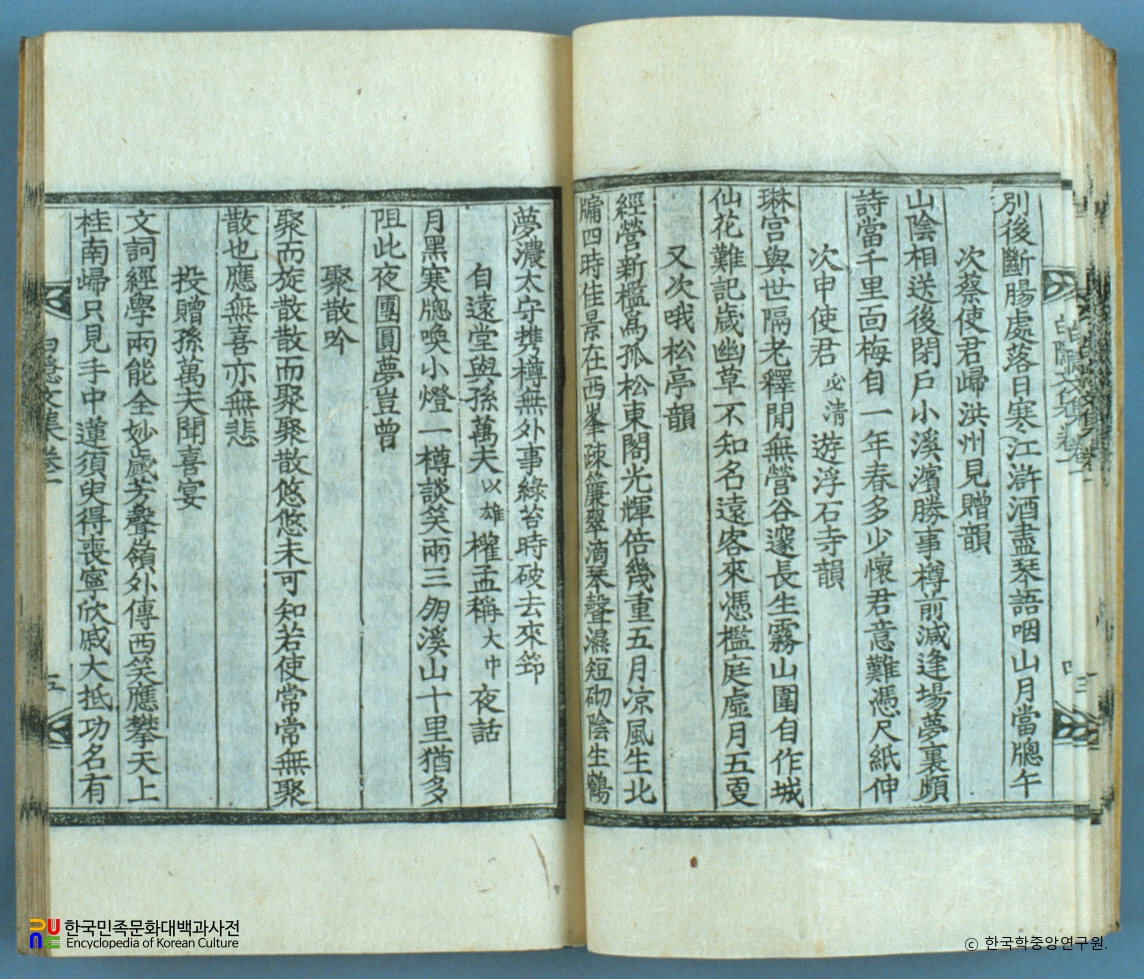 別後斷腸處落日寒江滸酒盡琴語咽山月當牕午
次蔡使君歸洪州見贈韻
山陰相送後閉戶小溪濱勝事樽前減逢場夢裏頻
詩當千里面梅自一年春多少懷君意難憑尺紙伸
次申使君必清遊浮石寺韻
琳宮與世隔老釋閒無營谷邃長生霧山圍自作城
仙花難記歲幽草不知名遠客來憑檻庭虛月五更
又次哦松亭韻
經營新檻爲孤松東閣光輝倍幾重五月凉風生北
牗四時佳景在西峯疎簾翠滴琴聲濕短砌陰生鶴
夢濃太守携樽無外事綠苔時破去來笻
自遠堂與孫萬夫以雄權孟稱大中夜話
月黑寒牕喚小燈一樽談笑兩三朋溪山十里猶多
阻此夜團圓夢豈曾
聚散吟
聚而旋散散而聚聚散悠悠未可知若使常常無聚
散也應無喜亦無悲
投贈孫萬夫聞喜宴
文詞經學兩能全妙歲芳聲嶺外傳西笑應攀天上
桂南歸只見手中蓮須臾得喪寧欣戚大抵功名有
文集卷一
五
한국민족문화대백과사전
Encyclopedia of Korean Culture
ⓒ 한국학중앙연구원.